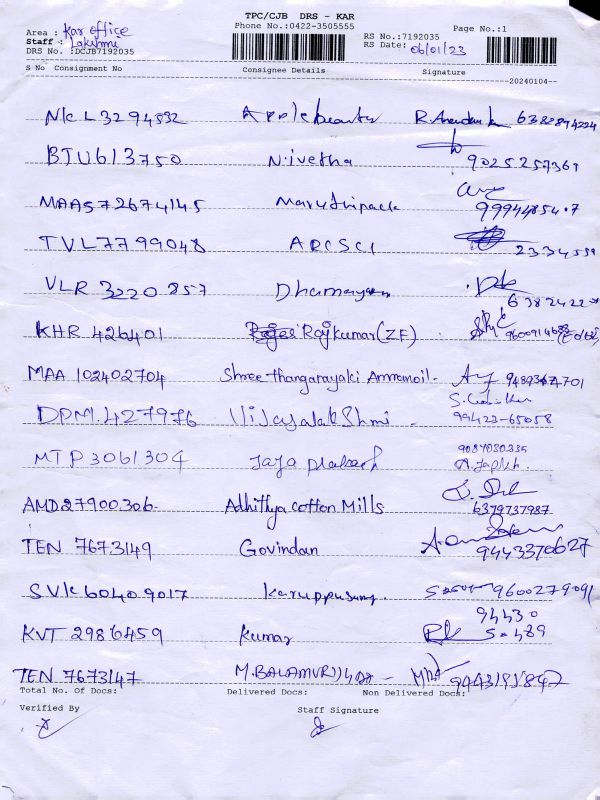 TPC/CJB DRS - KAR
Phone No.:0422-3505555
Page No.:1
Area : Kar office
Staff : Lakshmi
DRS No. :DCJB7192035
RS No.:7192035
RS Date: 06/01/23
S No Consignment No Consignee Details Signature
20240104
NCL3294532 Applebeauty 6382894224
BTU613750 Nivetha 9025257361
MAA572674145 Maruthipack
TVL7799048 ARCSCI 2334559
VLR 3220857 Dhamayan
KHR 426401 Rajkumar(ZF)
MAA 102402704 Shree-thangarayaki Ammanoil 9489367701
DPM.427976 Vijayalakshmi 99423-65058
MTP3061304 Jaya prakash 9087030335
AMD27900306 Adhithya cotton Mills 6379737987
TEN 7673149 Govindan 9443370627
SVK60409017 Karuppusamy 9600279091
KVT 2986459 Kumar 94430
TEN 7673147 M.BALAMURUGAN
Total No. Of Docs: Delivered Docs: Non Delivered Docs:
Verified By Staff Signature